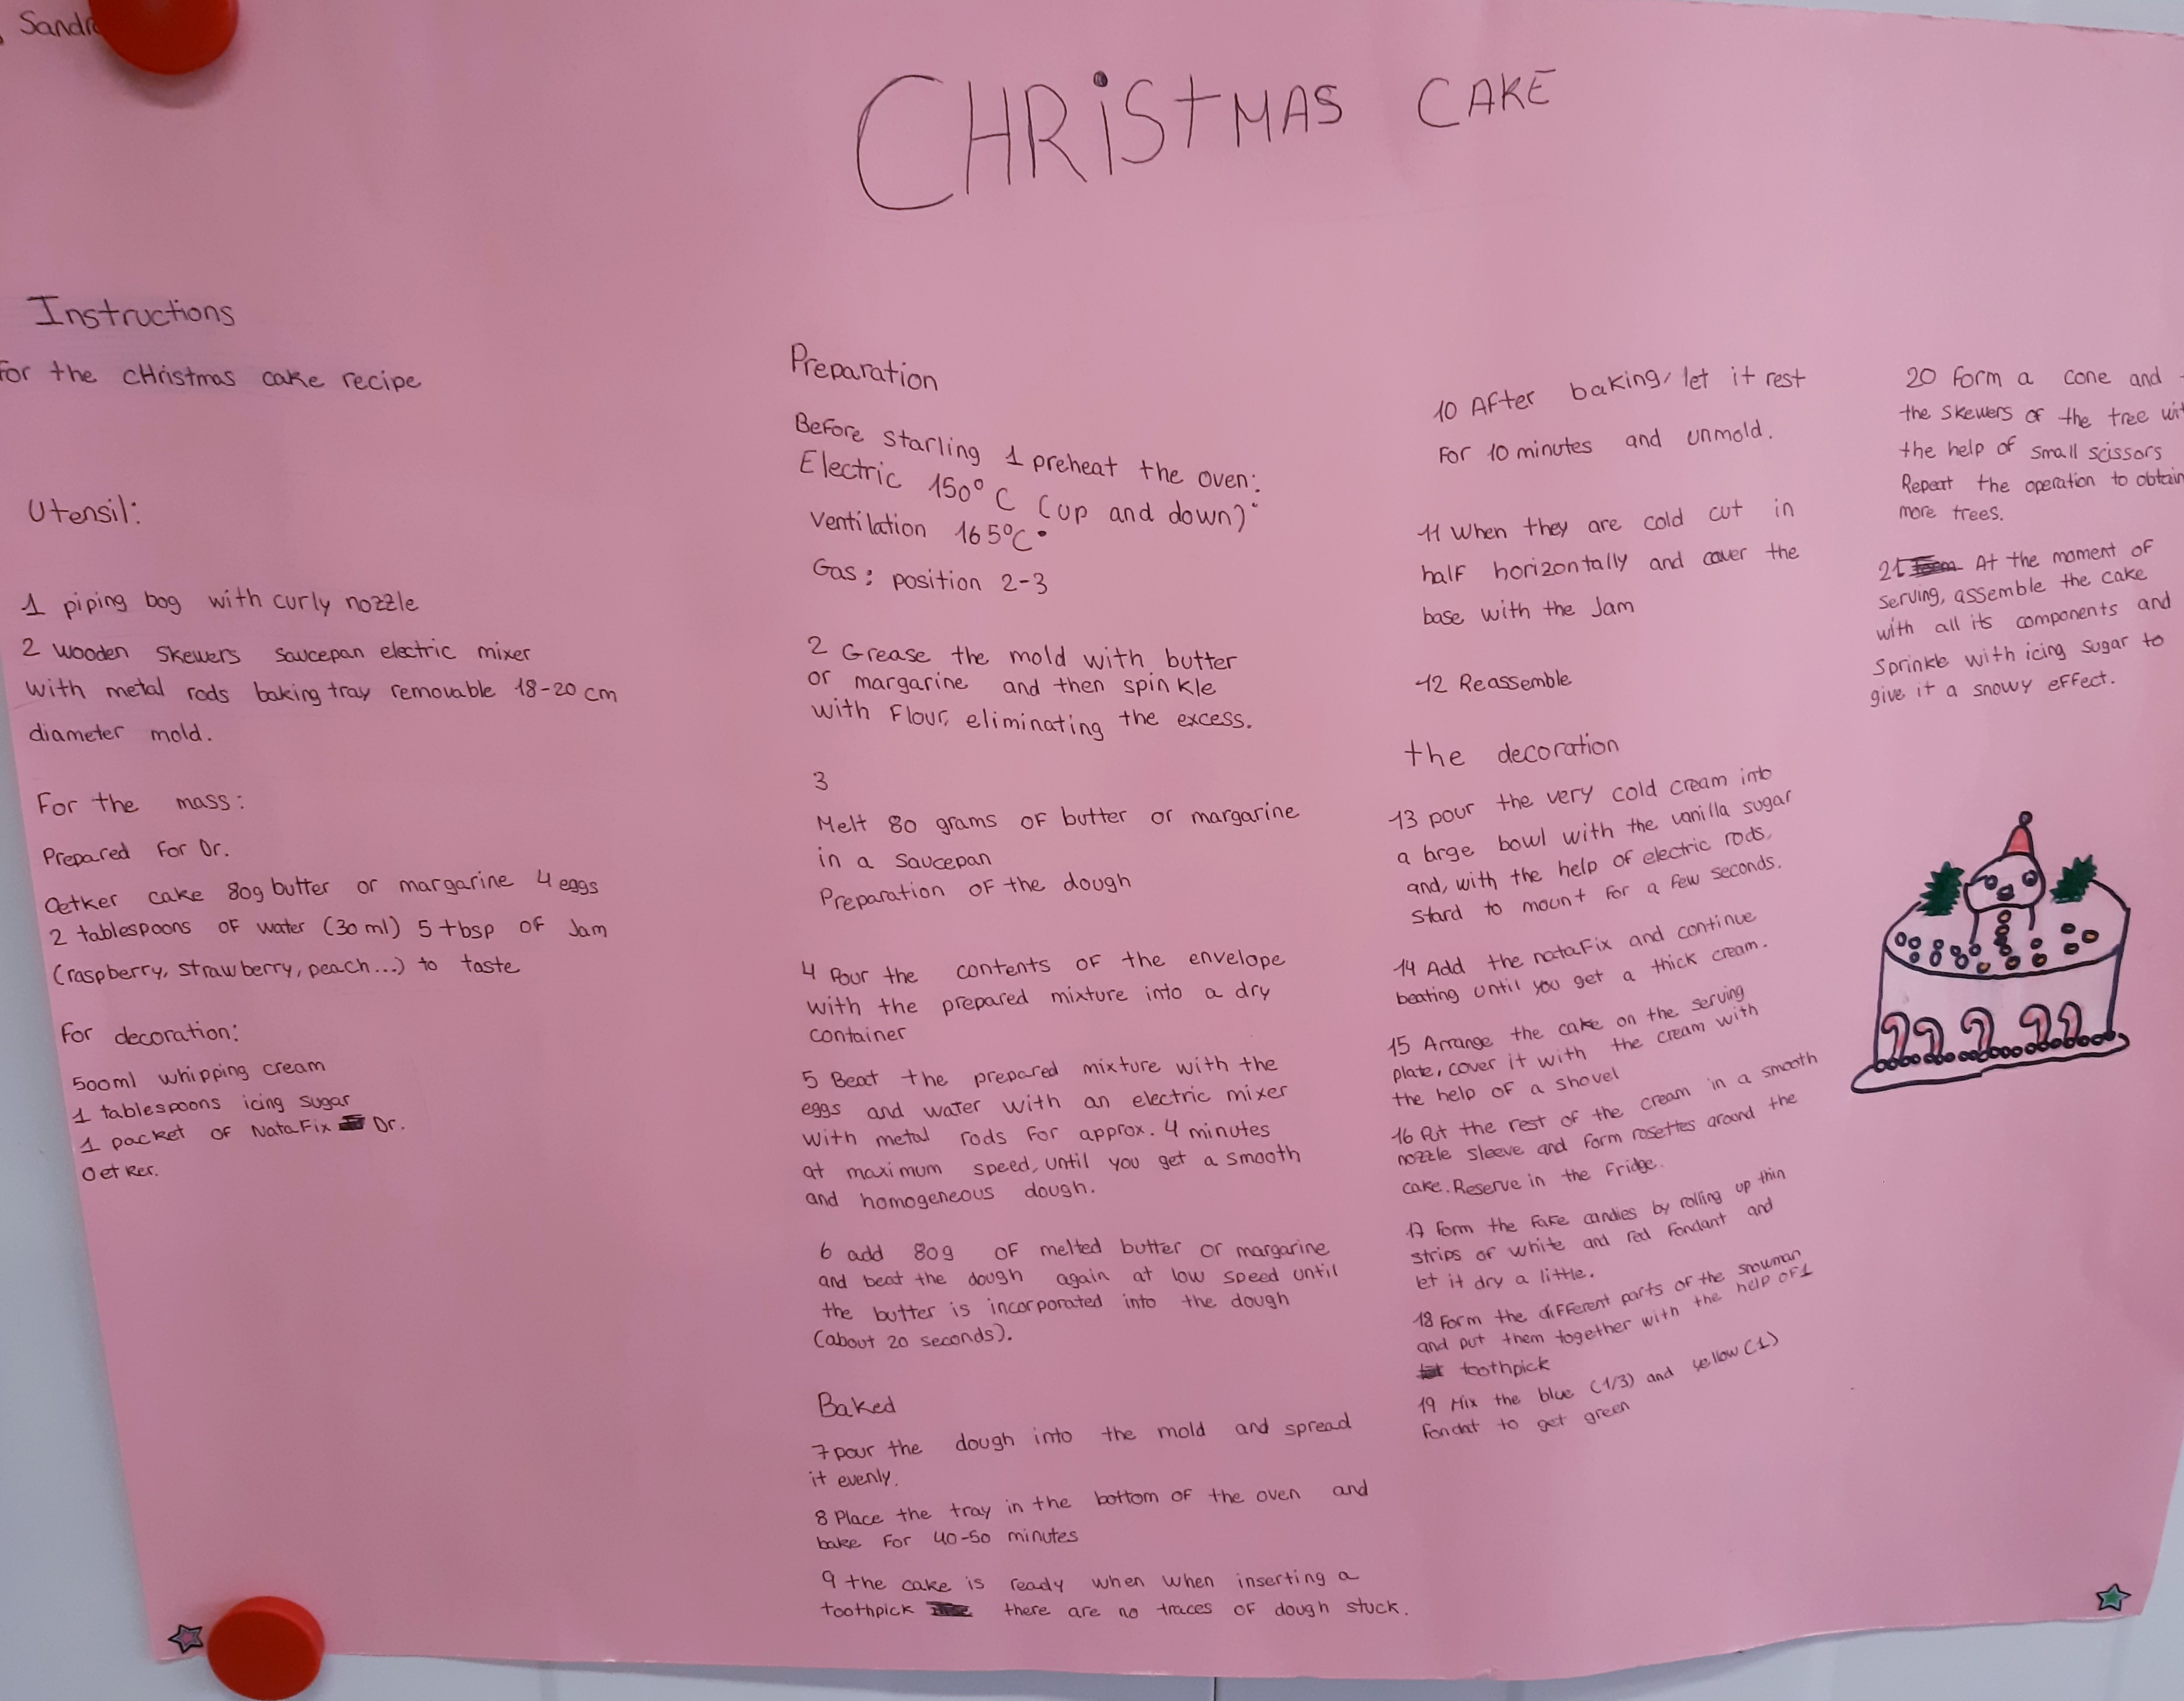 Sandr
CHRiStMAS CAKE
Instructions
For the cHristmas cake recipe
Utensil:
1 piping bog with curly nozzle
2 wooden skewers saucepan electric mixer
with metal rods baking tray removable 18-20 cm
diameter mold.
For the mass:
Prepared for Dr.
Oetker cake 80g butter or margarine 4 eggs
2 tablespoons of water (30 ml) 5 tbsp of Jam
(raspberry, strawberry, peach...) to taste
For decoration:
500ml whipping cream
1 tablespoons icing sugar
1 packet of NataFix Dr.
Oetker.
Preparation
Before starling 1 preheat the oven:
Electric 150° C (up and down)
Ventilation 165°C.
Gas: position 2-3
2 Grease the mold with butter
or margarine and then spinkle
with Flour, eliminating the excess.
3
Melt 80 grams of butter or margarine
in a saucepan
Preparation of the dough
4 Pour the contents of the envelope
with the prepared mixture into a dry
container
5 Beat the prepared mixture with the
eggs and water with an electric mixer
with metal rods for approx. 4 minutes
at maximum speed, until you get a smooth
and homogeneous dough.
6 add 80g of melted butter or margarine
and beat the dough again at low speed until
the butter is incorporated into the dough
(about 20 seconds).
Baked
7 pour the dough into the mold and spread
it evenly.
8 Place the tray in the bottom of the oven and
bake for 40-50 minutes
9 the cake is ready when when inserting a
toothpick there are no traces of dough stuck.
10 After baking, let it rest
for 10 minutes and unmold.
11 When they are cold cut in
half horizontally and cover the
base with the Jam
12 Reassemble
the decoration
13 pour the very cold cream into
a large bowl with the vanilla sugar
and, with the help of electric rods,
stard to mount for a few seconds.
14 Add the nataFix and continue
beating until you get a thick cream.
15 Arrange the cake on the serving
plate, cover it with the cream with
the help of a shovel
16 Put the rest of the cream in a smooth
nozzle sleeve and form rosettes around the
cake. Reserve in the fridge.
17 Form the fake candies by rolling up thin
strips of white and red fondant and
let it dry a little.
18 Form the different parts of the snowman
and put them together with the help of 1
toothpick
19 Mix the blue (1/3) and yellow (1)
fondat to get green
20 Form a cone and
the skewers of the tree wit
the help of small scissors
Repeat the operation to obtain
more trees.
21 At the moment of
serving, assemble the cake
with all its components and
Sprinkle with icing sugar to
give it a snowy effect.